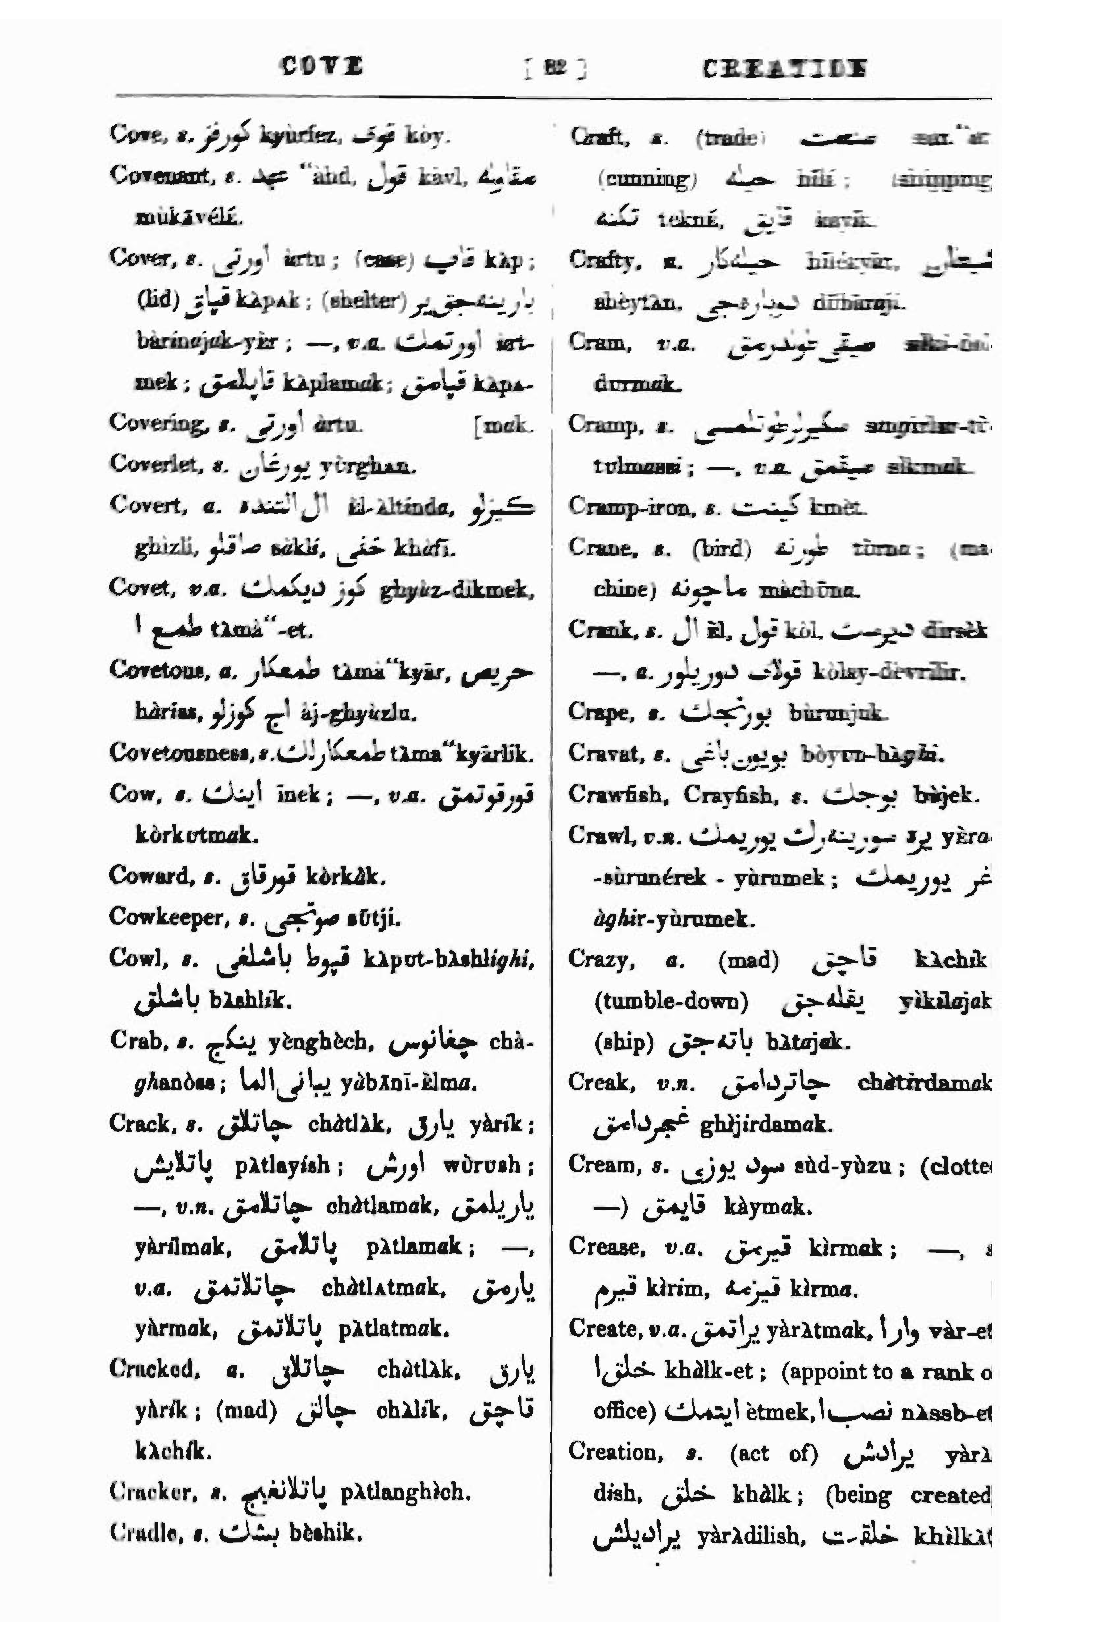 COVE [ 82 ] CREATION
Cove, s. كورفز kyùrfez, قوى kòy.
Covenant, s. عهد “àhd, قول kàvl, مقاوله
mùkāvélé.
Cover, s. اورتى ùrtu; (case) قاپ kàp;
(lid) قپاق kàpak; (shelter) بارينه‌جق ير
bàrinajak-yèr; —, v.a. اورتمك ùrt-
mek; قاپلامق kàplamak; قپامق kàpa-
Covering, s. اورتى ùrtu. [mak.
Coverlet, s. يورغان yòrghan.
Covert, a. ال التنده èl-àltínda, كيزلو
ghìzlí, صاقلو sàklí, خفى khàfī.
Covet, v.a. كوز ديكمك ghyùz-dikmek,
طمع ا tàmà“-et.
Covetous, a. طمعكار tàmà“kyār, حريص
hàriss, اج كوزلو àj-ghyùzlu.
Covetousness, s. طمعكارلك tàma“kyārlík.
Cow, s. اينك īnek; —, v.a. قورقوتمق
kòrkutmak.
Coward, s. قورقاق kòrkàk.
Cowkeeper, s. صوتجى sūtji.
Cowl, s. قپوط باشلغى kàput-bàshlighi,
باشلق bàshlik.
Crab, s. ينكج yènghèch, چغانوس chà-
ghanòss; يبانى الما yàbānī-èlma.
Crack, s. چاتلاق chàtlàk, يارق yàrík;
پاتلايش pàtlayísh; اورش wùrush;
—, v.n. چاتلامق chàtlamak, ياريلمق
yàrílmak, پاتلامق pàtlamak; —,
v.a. چاتلاتمق chàtlatmak, يارمق
yàrmak, پاتلاتمق pàtlatmak.
Cracked, a. چاتلاق chàtlàk, يارق
yàrík; (mad) چالق chàlík, قاچق
kàchík.
Cracker, s. پاتلانغيج pàtlanghìch.
Cradle, s. بشك bèshik.
Craft, s. (trade) صنعت
(cunning) حيله hīlé; (shipping
تكنه tekné, قايق kayík.
Crafty, a. حيله‌كار hīlékyār, شيطان
shèytàn, دوباره‌جى dūbāraji.
Cram, v.a. صيقى طولدرمق
durmak.
Cramp, s. سكيرلر طوتلمسى singirler-tù
tulmassi; —, v.a. صيقمق sikmak.
Cramp-iron, s. كينت kinèt.
Crane, s. (bird) طورنه tùrna; (ma
chine) ماچونه màchūna.
Crank, s. ال èl, قول kòl, ديرسك dirsèk
—, a. قولاى دوريلور kòlay-dèvrilir.
Crape, s. بورنجك bùrunjuk.
Cravat, s. بويون باغى bòyun-bàghi.
Crawfish, Crayfish, s. بوجك bùjek.
Crawl, v.n. يره سورينه‌رك يوريمك yèra
-sùrunérek - yùrumek; غر يوريمك
àghir-yùrumek.
Crazy, a. (mad) قاچق kàchík
(tumble-down) يقله‌جق yìkílajak
(ship) باته‌جق bàtajak.
Creak, v.n. چاتردامق chàtírdamak
غجردامق ghìjirdamak.
Cream, s. سود يوزى sùd-yùzu; (clotte
—) قايمق kàymak.
Crease, v.a. قيرمق kìrmak; —, s
قيرم kìrim, قيرمه kìrma.
Create, v.a. يراتمق yàràtmak, وار ا vàr-et
خلق ا khàlk-et; (appoint to a rank o
office) ايتمك ètmek, نصب ا nàssb-et
Creation, s. (act of) يرادش yàrà
dísh, خلق khàlk; (being created
يراديلش yàràdilish, خلقت khìlkàt